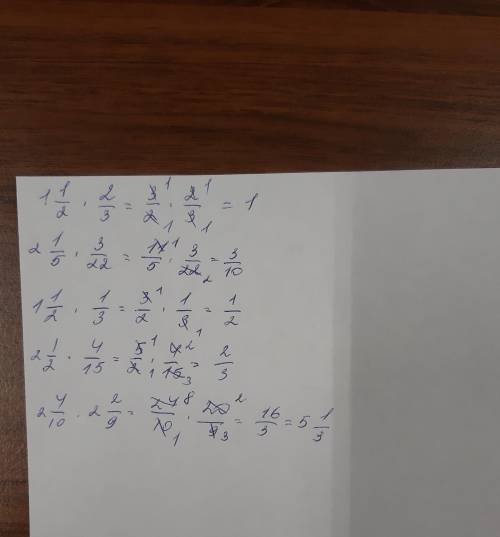 1 1/2 · 2/3 = 3/2 · 2/3 = 1
2 1/5 · 3/22 = 11/5 · 3/22 = 3/10
1 1/2 · 1/3 = 3/2 · 1/3 = 1/2
2 1/2 · 4/15 = 5/2 · 4/15 = 2/3
2 4/10 · 2 2/9 = 24/10 · 20/9 = 16/3 = 5 1/3